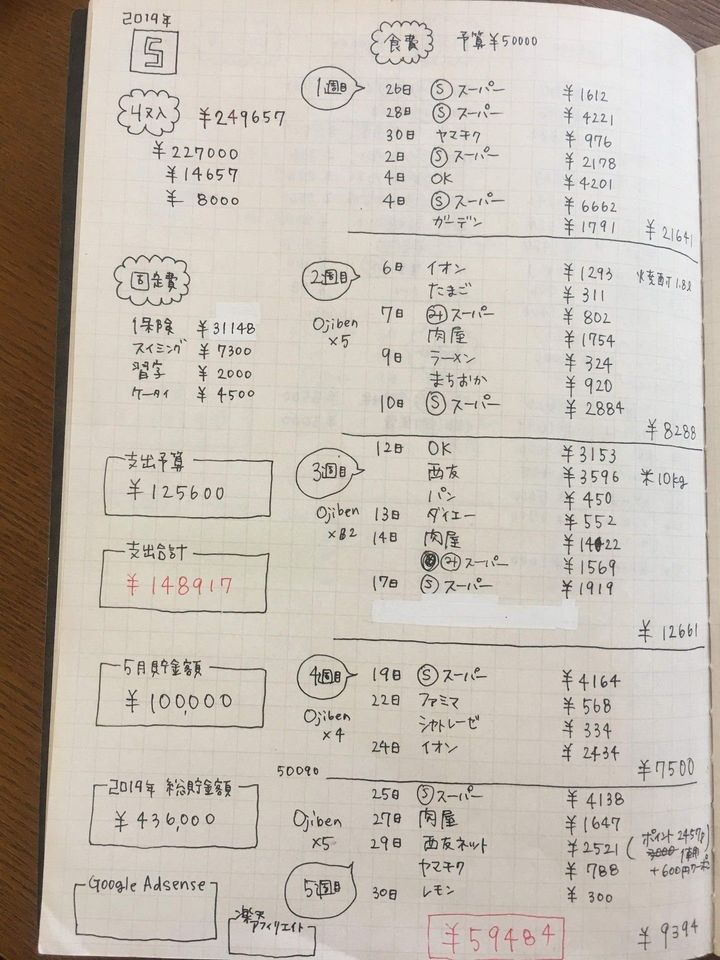 2019年
5
収入 ¥249657
¥227000
¥14657
¥ 8000
固定費
保険 ¥31148
スイミング ¥7300
習字 ¥2000
ケータイ ¥4500
支出予算
¥125600
支出合計
¥148917
5月貯金額
¥100,000
2019年 総貯金額
¥436,000
Google Adsense
楽天
アフィリエイト
食費 予算¥50000
1週目
26日 Ⓢスーパー ¥1612
28日 Ⓢスーパー ¥4221
30日 ヤマキク ¥976
2日 Ⓢスーパー ¥2178
4日 OK ¥4201
4日 Ⓢスーパー ¥6662
ガーデン ¥1791 ¥21641
2週目
Ojiben
×5
6日 イオン ¥1293
1.8ℓ
たまご ¥311
7日 スーパー ¥802
肉屋 ¥1754
9日 ラーメン ¥324
まちおか ¥920
10日 Ⓢスーパー ¥2884
¥8288
3週目
Ojiben
×2
12日 OK ¥3153
西友 ¥3596 米10kg
パン ¥450
13日 ダイエー ¥552
14日 肉屋 ¥1422
スーパー ¥1569
17日 Ⓢスーパー ¥1919
¥12661
4週目
Ojiben
×4
19日 Ⓢスーパー ¥4164
22日 ファミマ ¥568
シャトレーゼ ¥334
24日 イオン ¥2434
¥7500
50090
Ojiben
×5
5週目
25日 Ⓢスーパー ¥4138
27日 肉屋 ¥1647
29日 西友ネット ¥2521 (ポイント2457
使用
+600円クーポン)
ヤマキク ¥788
30日 レモン ¥300
¥9394
¥59484